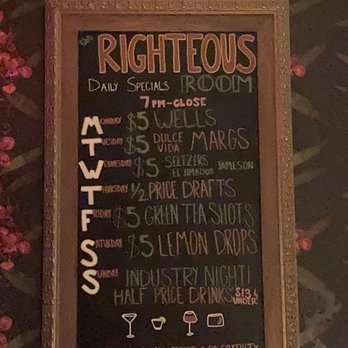 RIGHTEOUS
DAILY SPECIALS ROOM
7PM-CLOSE
MONDAY $5 WELLS
TUESDAY $5 DULCE VIDA MARGS
WEDNESDAY $5 SELTZERS EL JIMADOR JAMESON
THURSDAY 1/2 PRICE DRAFTS
FRIDAY $5 GREEN TEA SHOTS
SATURDAY $5 LEMON DROPS
SUNDAY INDUSTRY NIGHT!
HALF PRICE DRINKS $13 & UNDER